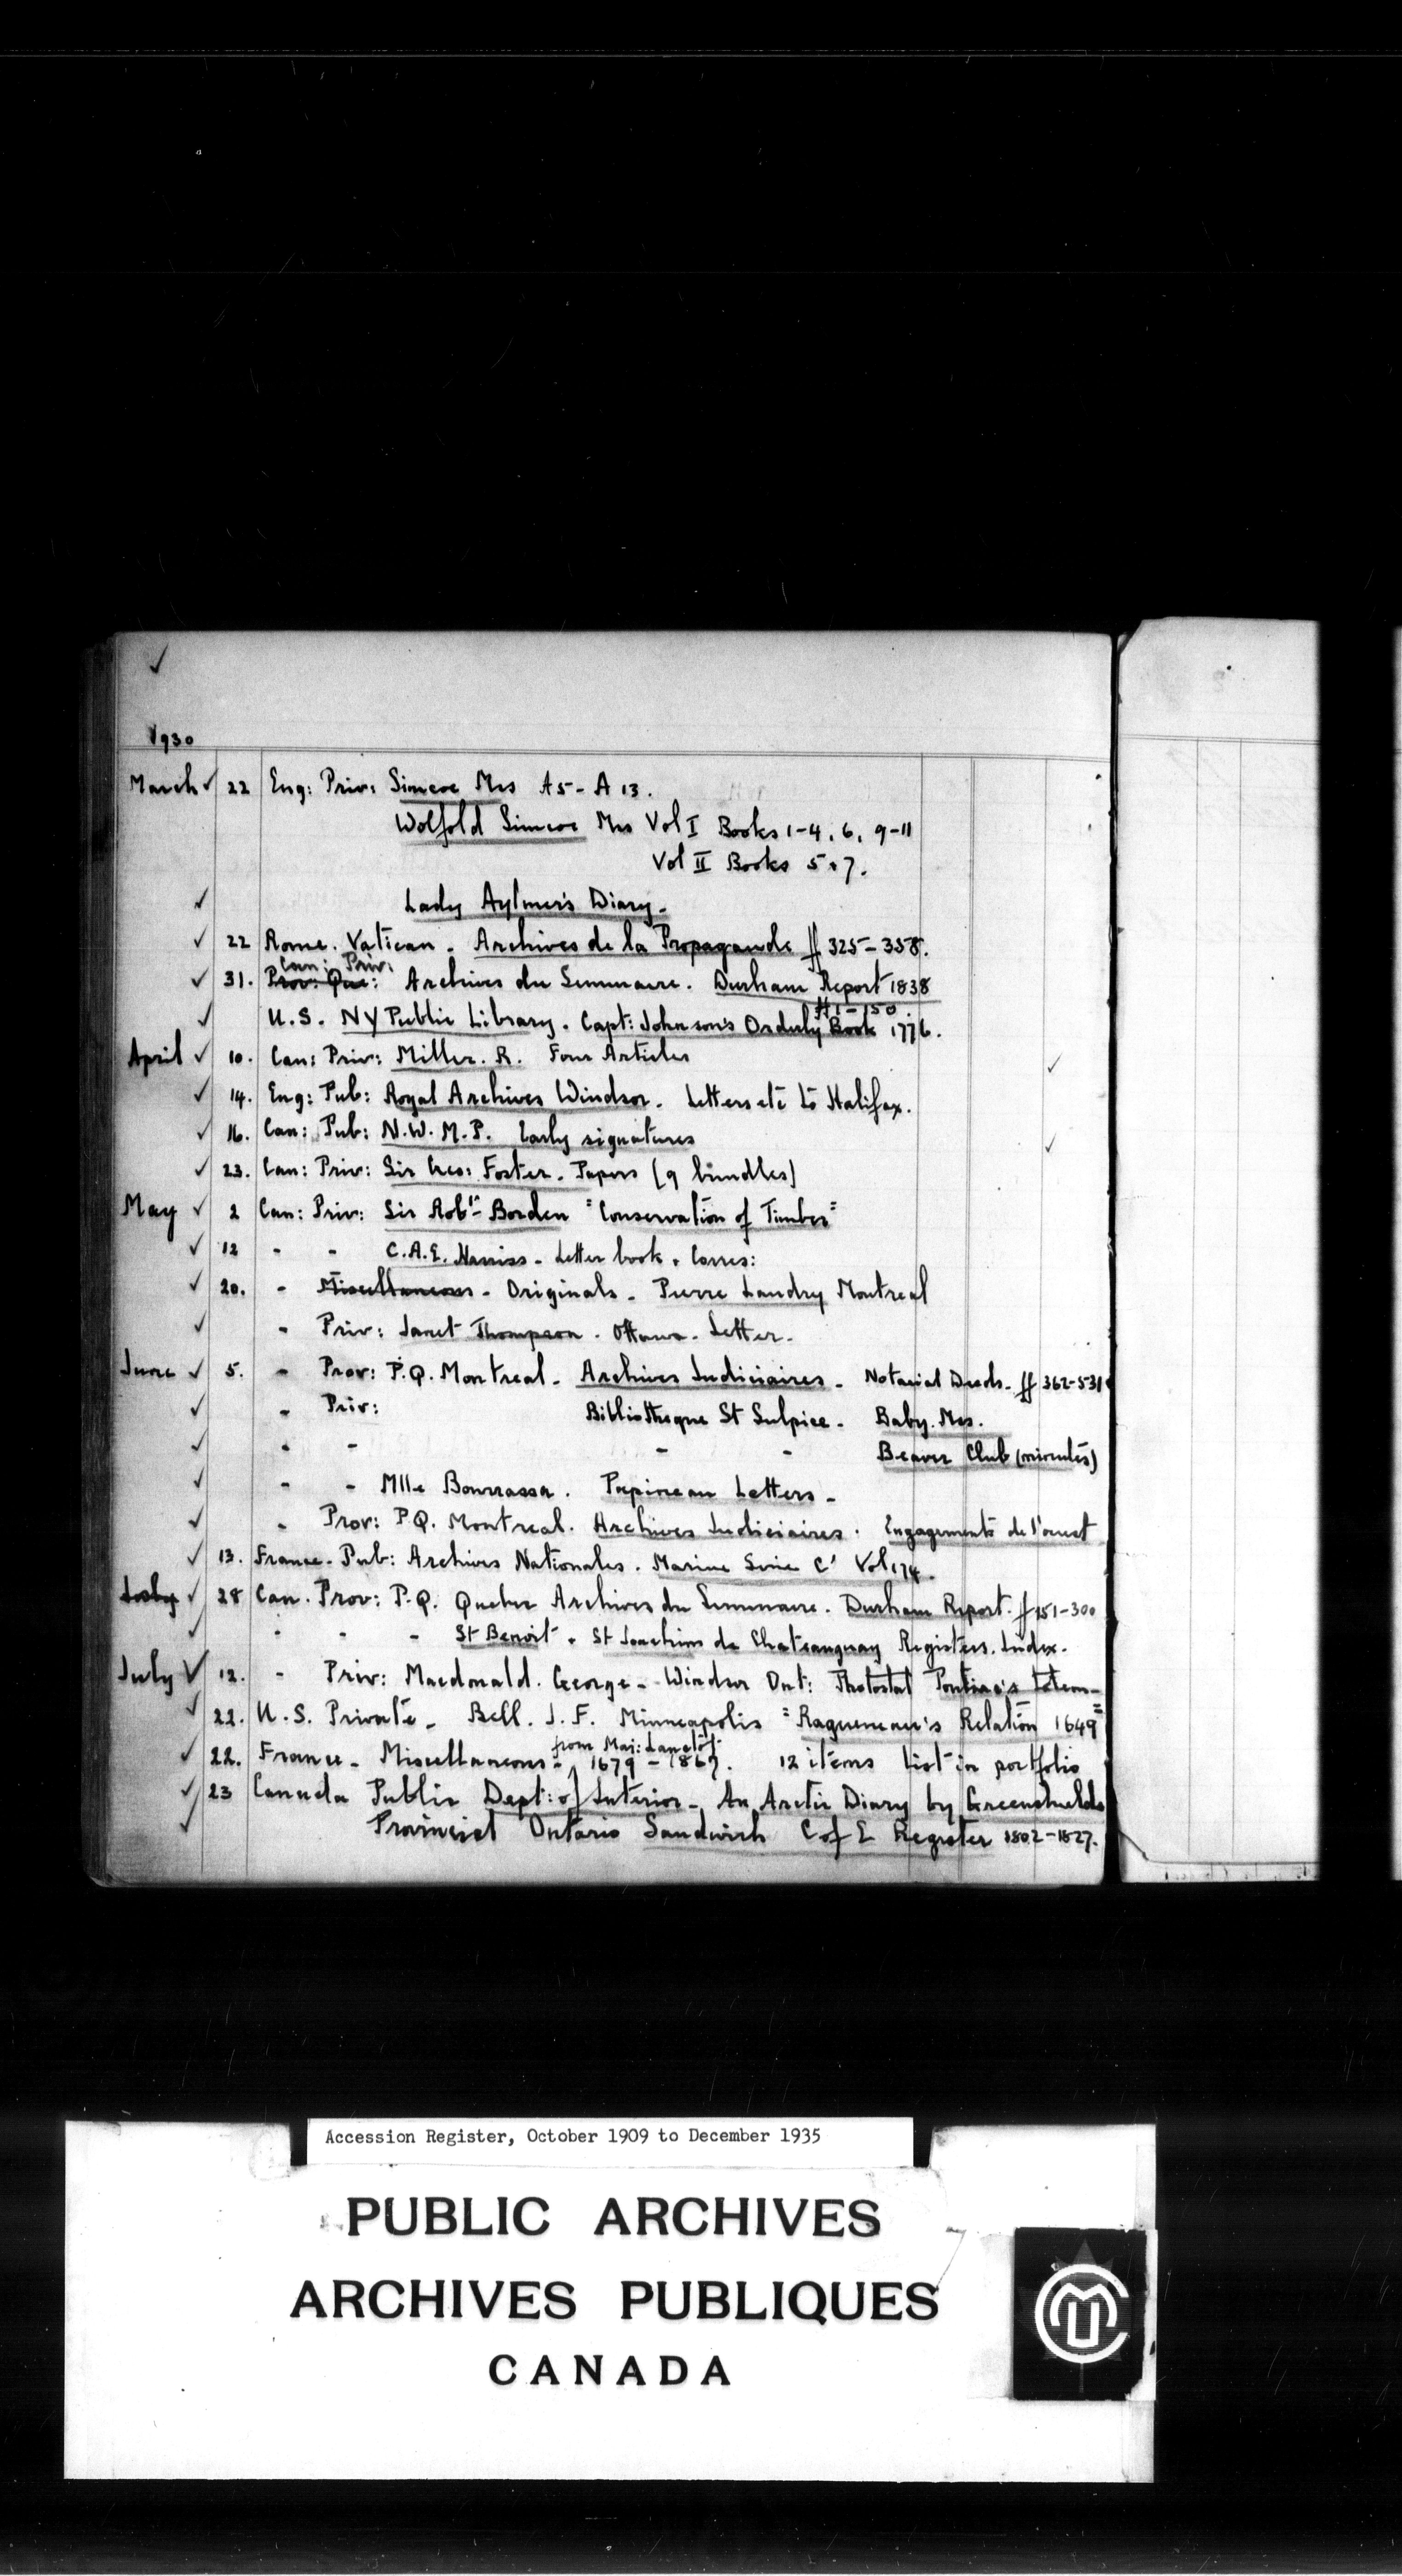 1930
March ✓ 22 Eng: Priv: Simcoe Mss A5 - A 13.
Wolfold Simcoe Mss Vol I Books 1-4, 6, 9-11
Vol II Books 5 & 7.
✓ Lady Aylmer's Diary.
✓ 22 Rome. Vatican. Archives de la Propagande ff 325-358.
Can: Priv:
✓ 31. Prov: Que: Archives du Seminaire. Durham Report 1838
ff 1-150.
✓ U.S. NY Public Library. Capt: Johnson's Orderly Book 1776.
April ✓ 10. Can: Priv: Miller. R. Four Articles ✓
✓ 14. Eng: Pub: Royal Archives Windsor. Letters etc to Halifax.
✓ 16. Can: Pub: N.W.M.P. Early signatures ✓
✓ 23. Can: Priv: Sir Geo: Foster. Papers (9 bundles)
May ✓ 2 Can: Priv: Sir Robt Borden "Conservation of Timber"
✓ 12 - - C.A.E. Harriss - Letter book & Corres:
✓ 20. - Miscellaneous - Originals - Pierre Landry Montreal
✓ - Priv: Janet Thompson. Ottawa. Letter.
June ✓ 5. - Prov: P.Q. Montreal - Archives Judiciaires - Notarial Deeds - ff 362-531
✓ - Priv: Bibliotheque St Sulpice - Baby. Mss.
✓ - - - - Beaver Club (minutes)
✓ - - Mlle Bourrassa. Papineau Letters -
✓ - Prov: P.Q. Montreal. Archives Judiciaires. Engagements de l'ouest
✓ 13. France - Pub: Archives Nationales. Marine Serie C' Vol 174.
✓ 28 Can. Prov: P.Q. Quebec Archives du Seminaire. Durham Report. ff 151-300
✓ - - - St Benoit & St Joachim de Chateauguay Registers. Index.
July ✓ 12. - Priv: Macdonald. George - Windsor Ont: Photostat Pontiac's Totem -
✓ 22. U.S. Private - Bell. J.F. Minneapolis "Ragueneau's Relation 1649"
from Maj: Lanctôt
✓ 22. France - Miscellaneous - 1679 - 1867. 12 items list in portfolio
✓ 23 Canada Public Dept: of Interior - An Arctic Diary by Greenshields
✓ Provincial Ontario Sandwich C of E Register 1802-1827.
Accession Register, October 1909 to December 1935
PUBLIC ARCHIVES
ARCHIVES PUBLIQUES
CANADA